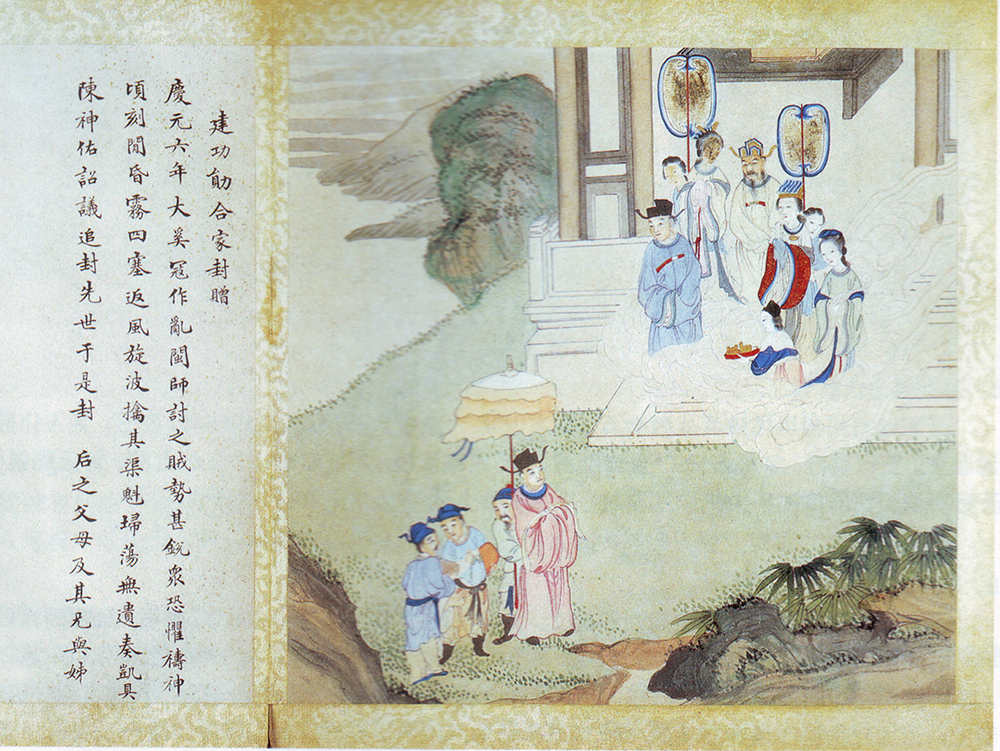 建功勛合家封贈
慶元六年大奚冦作亂閩師討之賊勢甚銳眾恐懼禱神
頃刻間昏霧四塞返風旋波擒其渠魁埽蕩無遺奏凱具
陳神佑詔議追封先世于是封 后之父母及其兄與姊